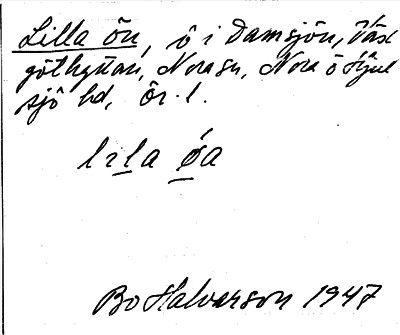 Lilla ön, ö i Damsjön, Väst
göthyttan, Nora sn, Nora ö Hjul
sjö hd, Ör. l.
lɩla øa
Bo Halvarson 1947